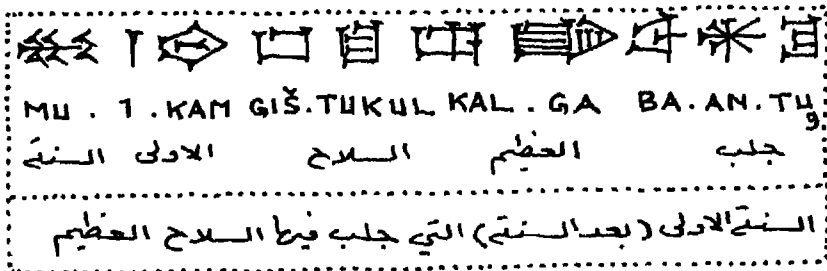 MU . 1 . KAM GIŠ.TUKUL KAL . GA BA . AN . TU₉
السنة الاولى السلاح العظيم جلب
السنة الاولى (بعد السنة) التي جلب فيها السلاح العظيم